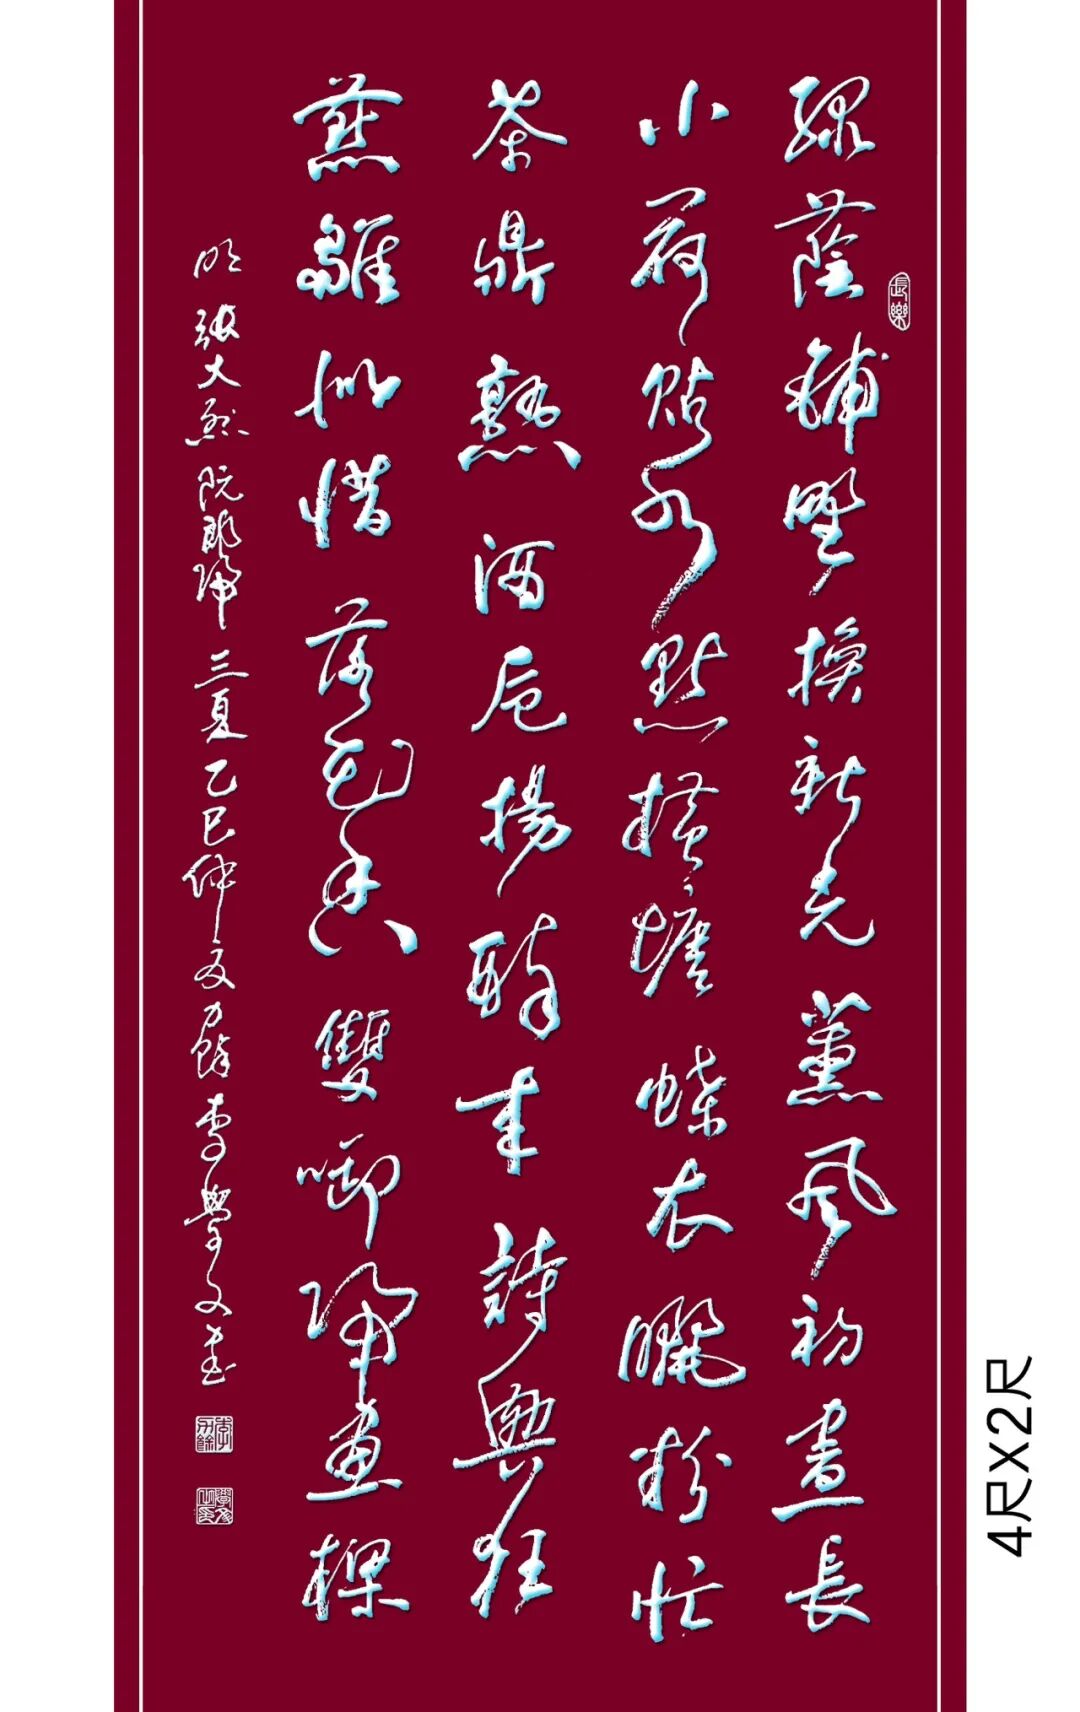 綠蔭鋪野換新光薰風初晝長
小荷貼水點橫塘蝶衣曬粉忙
茶鼎熟酒卮揚醉來詩興狂
燕雛似惜落花香雙啣歸畫樑
明張大烈阮郎歸立夏乙巳仲夏力餘李學文書
長樂
4尺X2尺